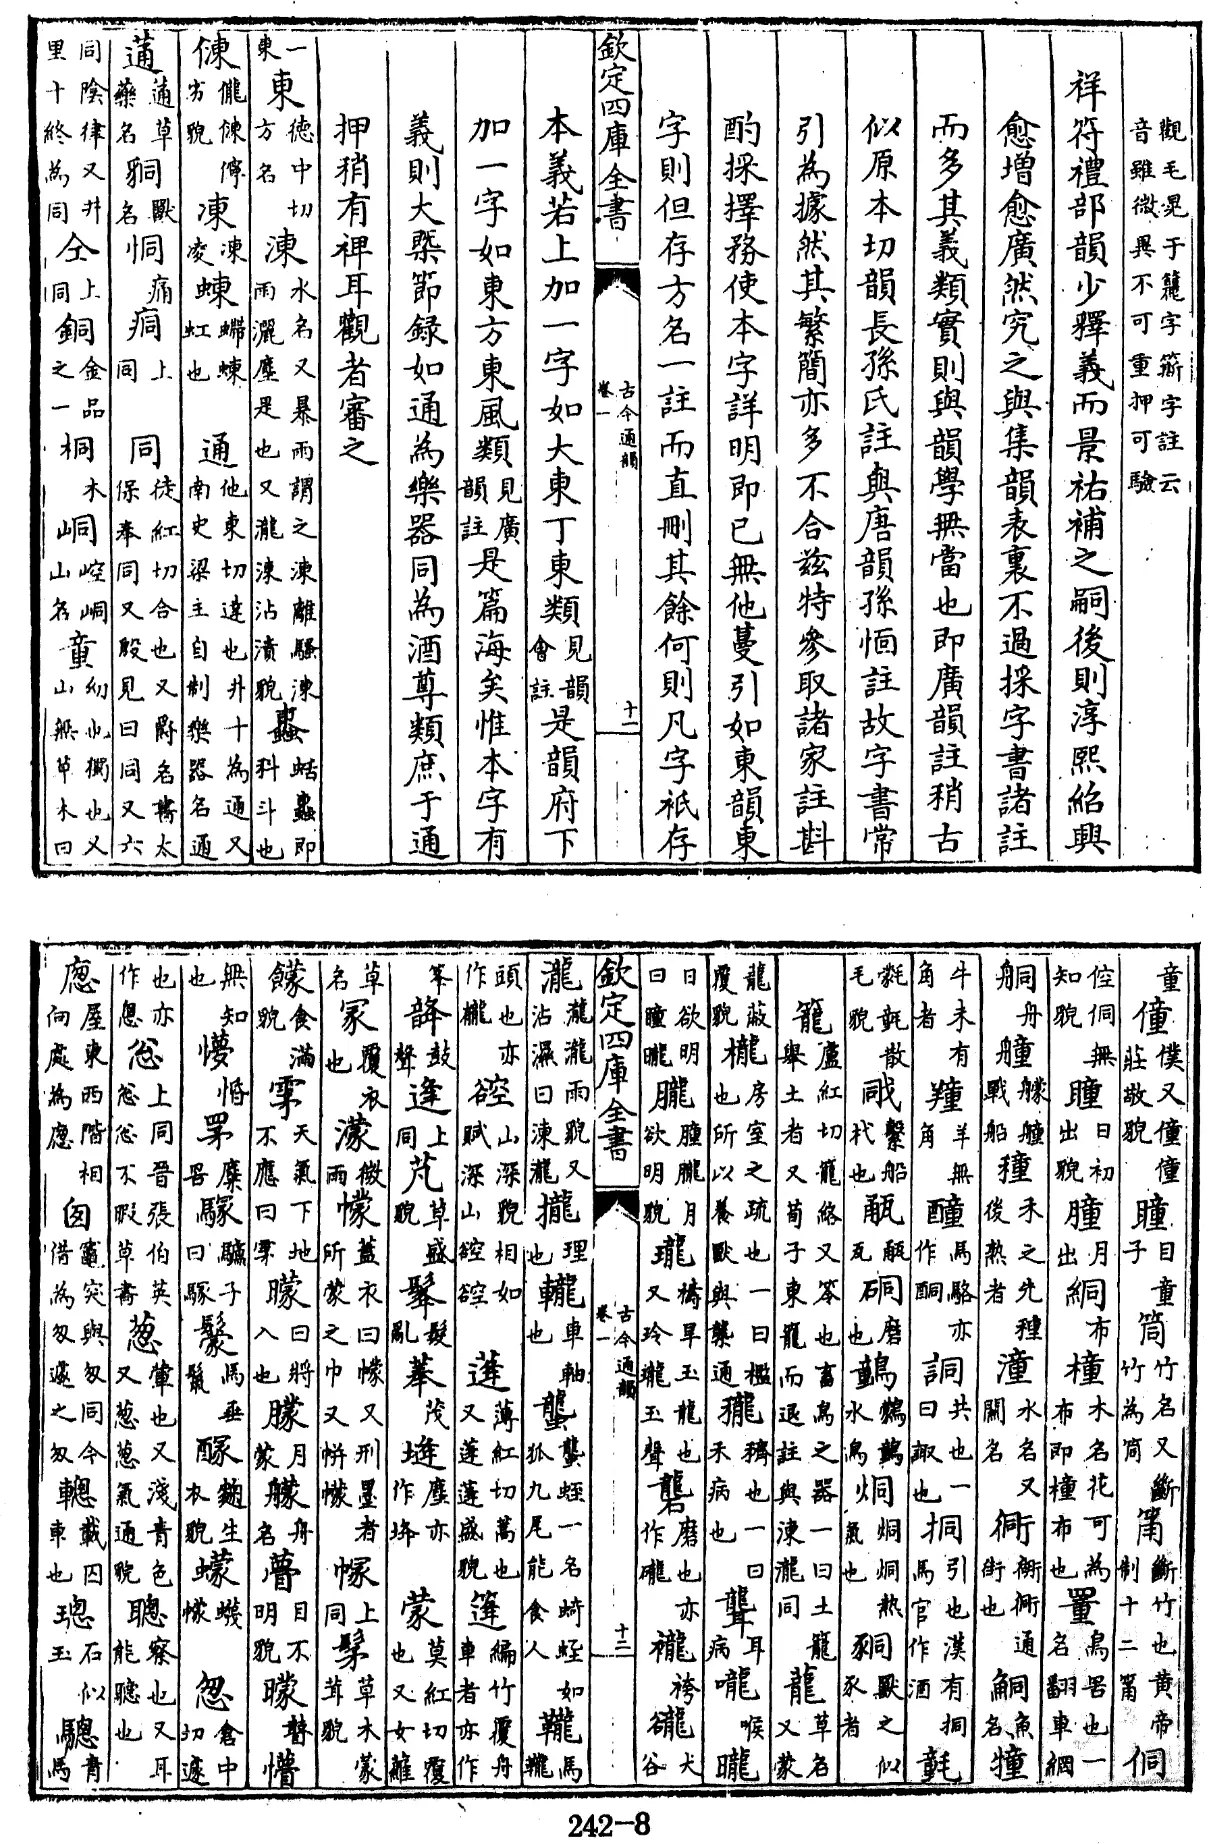 觀毛晃于籠字簕字註云音雖微異不可重押可驗
祥符禮部韻少釋義而景祐補之嗣後則淳熙紹興
愈增愈廣然究之與集韻表裏不過採字書諸註
而多其義類實則與韻學無當也即廣韻註稍古
似原本切韻長孫氏註與唐韻孫愐註故字書常
引為據然其繁簡亦多不合兹特參取諸家註斟
酌採擇務使本字詳明即已無他蔓引如東韻東
字則但存方名一註而直刪其餘何則凡字祇存
欽定四庫全書 古今通韻 卷一 十一
本義若上加一字如大東丁東類見韻會註是韻府下
加一字如東方東風類見廣韻註是篇海矣惟本字有
義則大槩節録如通為樂器同為酒尊類庶于通
押稍有裨耳觀者審之
一東 東德中切方名涷水名又暴雨謂之涷離騷涷雨灑塵是也又瀧涷沾漬貌䗢蛞䗢即科斗也
倲儱倲儜劣貌凍凍凌蝀螮蝀虹也通他東切達也井十為通又南史梁主自制樂器名通
蓪蓪草藥名獸名恫痛痌上同同徒紅切合也又爵名書太保奉同又殷見曰同又六
同陰律又井里十終為同仝上同銅金品之一桐木峒崆峒山名童幼也獨也又山無草木曰
童僮僕又僮僮莊敬貌瞳目童子筒竹名又斷竹為筒斷竹也黄帝制十二侗
倥侗無知貌曈日初出貌朣月出絧布橦木名花可為布即橦布也罿鳥罟也一名翻車網
舟艟艨艟戰船穜禾之先種後熟者潼水名又關名衕衖衕通街也鮦魚名犝
牛未有角者羊無角馬酪亦作酮詷共也一曰諏也挏引也漢有挏馬官作酒氃
氋氃散毛貌戙繫船杙也硐磨也水鳥烔烔烔熱氣也獸之似豕者
籠盧紅切籠絡又笭也畜鳥之器一曰土籠舉土者又荀子東籠而退註與涷瀧同蘢草名又蒙
蘢蔽覆貌櫳房室之疏也一曰檻也所以養獸與通穧也一曰禾病也聾耳病嚨喉曨
日欲明曰曈曨朧朣朧月欲明貌瓏禱旱玉龍也又玲瓏玉聲礱磨也亦作襱袴豅大谷
欽定四庫全書 古今通韻 卷一 十二
瀧瀧瀧雨貌又沾濕曰涷瀧攏理也車軸也蠪蠪蛭一名蛭如狐九尾能食人馬
頭也亦作谾山深貌相如賦深山谾谾蓬薄紅切蒿也又蓬蓬盛貌篷編竹覆舟車者亦作
韸鼓聲逢上同芃草盛貌髼髮亂茂塳塵亦作蒙莫紅切覆也又女蘿
草名冡覆也濛微雨幪蓋衣曰幪又刑墨者所蒙之巾又帡幪上同草木蒙茸貌
饛食滿貌天氣下地不應曰矇日將入也朦月朦艨舟名瞢目不明貌矇瞽懵
無知也懜惛罞麋罟曰罞驢子曰騣馬垂鬣醿麴生衣貌蠓蠛蠓怱倉中切遽
也亦作忽上同晉張伯英怱怱不暇草書葱葷也又淺青色又葱葱氣通貌聰察也又耳能聽也
屋東西階相向處為囱竈突與匆同今借為匆遽之匆載囚車也璁石似玉驄青馬
242-8